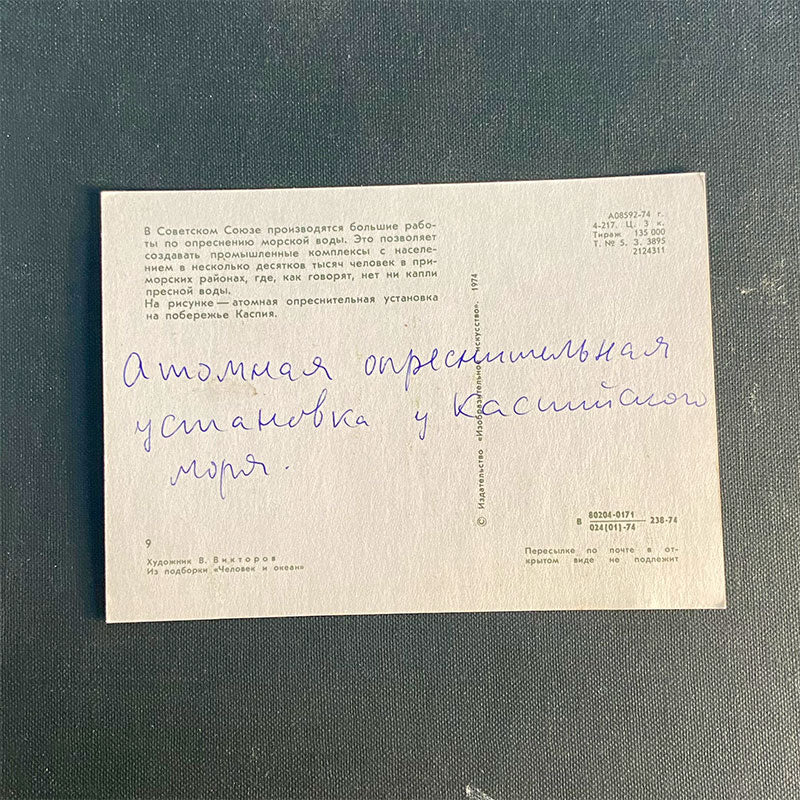 В Советском Союзе производятся большие рабо-
ты по опреснению морской воды. Это позволяет
создавать промышленные комплексы с населе-
нием в несколько десятков тысяч человек в при-
морских районах, где, как говорят, нет ни капли
пресной воды.
На рисунке — атомная опреснительная установка
на побережье Каспия.
А08592-74 г.
4-217. Ц. 3 к.
Тираж 135 000
Т. № 5. З. 3895
2124311
Атомная опреснительная
установка у Каспийского
моря.
© Издательство «Изобразительное искусство». 1974
9
Художник В. Викторов
Из подборки «Человек и океан»
В 80204-0171 238-74
024(01)-74
Пересылке по почте в от-
крытом виде не подлежит